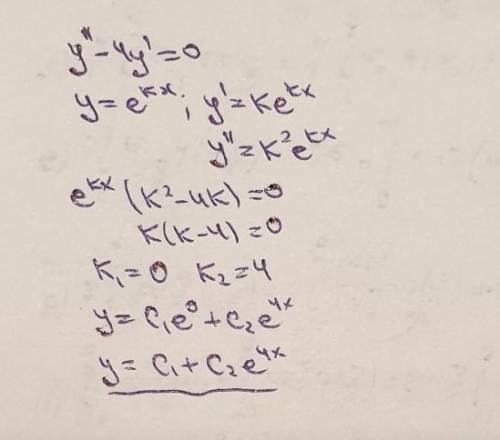 y'' - 4y' = 0
y = e^{kx}; y' = ke^{kx}
y'' = k²e^{kx}
e^{kx}(k² - 4k) = 0
k(k - 4) = 0
k₁ = 0 k₂ = 4
y = C₁e⁰ + C₂e^{4x}
y = C₁ + C₂e^{4x}